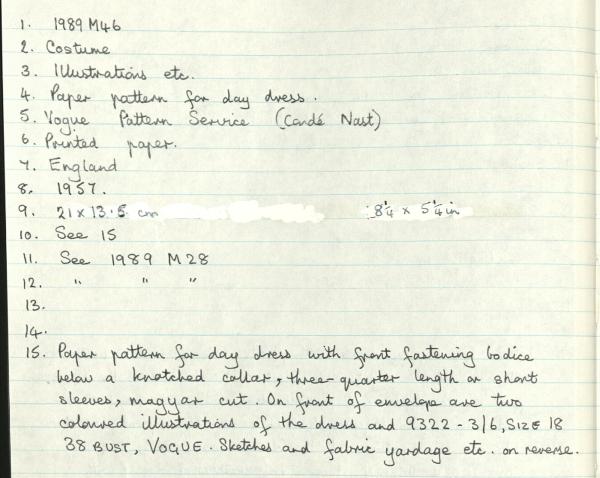 1. 1989 M46
2. Costume
3. Illustrations etc.
4. Paper pattern for day dress.
5. Vogue Pattern Service (Condé Nast)
6. Printed paper.
7. England
8. 1957.
9. 21 x 13.5 cm 8¼ x 5¼ in
10. See 15
11. See 1989 M 28
12. " " "
13.
14.
15. Paper pattern for day dress with front fastening bodice
below a knotched collar, three-quarter length or short
sleeves, magyar cut. On front of envelope are two
coloured illustrations of the dress and 9322 - 3/6, SIZE 18
38 BUST, VOGUE. Sketches and fabric yardage etc. on reverse.